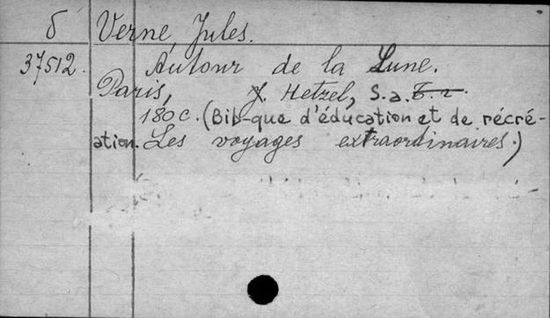 б Verne, Jules.
37512. Autour de la Lune.
Paris, J. Hetzel, s.a. б. г.
180 c. (Bib-que d'éducation et de récré-
ation. Les voyages extraordinaires.)